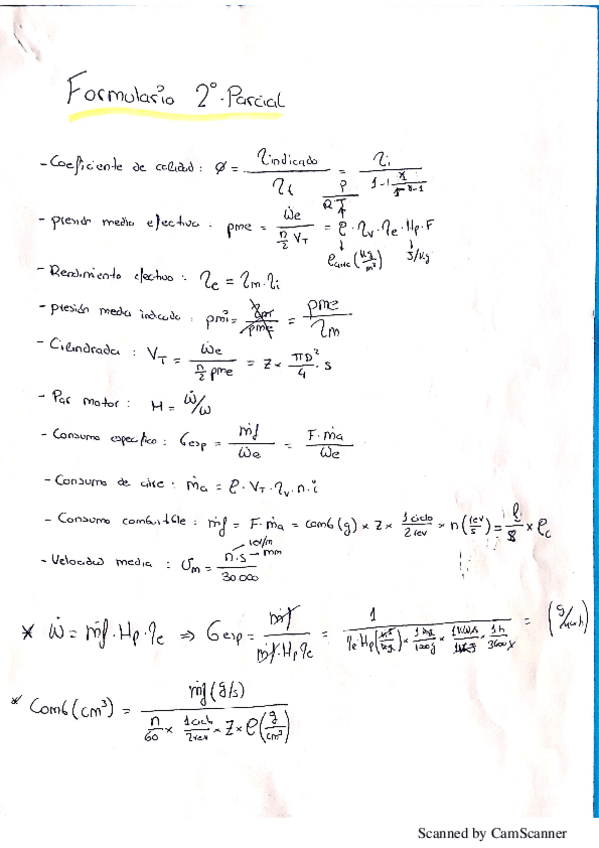 Formulario 2º Parcial
- Coeficiente de calidad : φ = η indicado / η t = ηi / 1-1
P / R T
- presión media efectiva : pme = Ẇe / (n/2 VT) = ρ · ηv · ηe · Hp · F
ρ aire (kg/m³) J/kg
- Rendimiento efectivo : ηe = ηm · ηi
- presión media indicada : pmi = = pme / ηm
- Cilindrada : VT = Ẇe / (n/2 pme) = Z × πD²/4 · s
- Par motor : M = Ẇ/ω
- Consumo especifico : Gesp = ṁf / Ẇe = F · ṁa / Ẇe
- Consumo de aire : ṁa = ρ · VT · ηv · n · i
- Consumo combustible : ṁf = F · ṁa = comb (g) × Z × 1 ciclo / 2 rev × n (rev/s) = ℓ/s × ρc
rev/m mm
- Velocidad media : Um = n · s / 30.000
* Ẇ = ṁf · Hp · ηe ⇒ Gesp = ṁf / ṁf · Hp · ηe = 1 / ηe · Hp = (g/kwh)
* Comb (cm³) = ṁf (g/s) / n/60 × 1 ciclo / 2 rev × Z × ρ (g/cm³)
Scanned by CamScanner